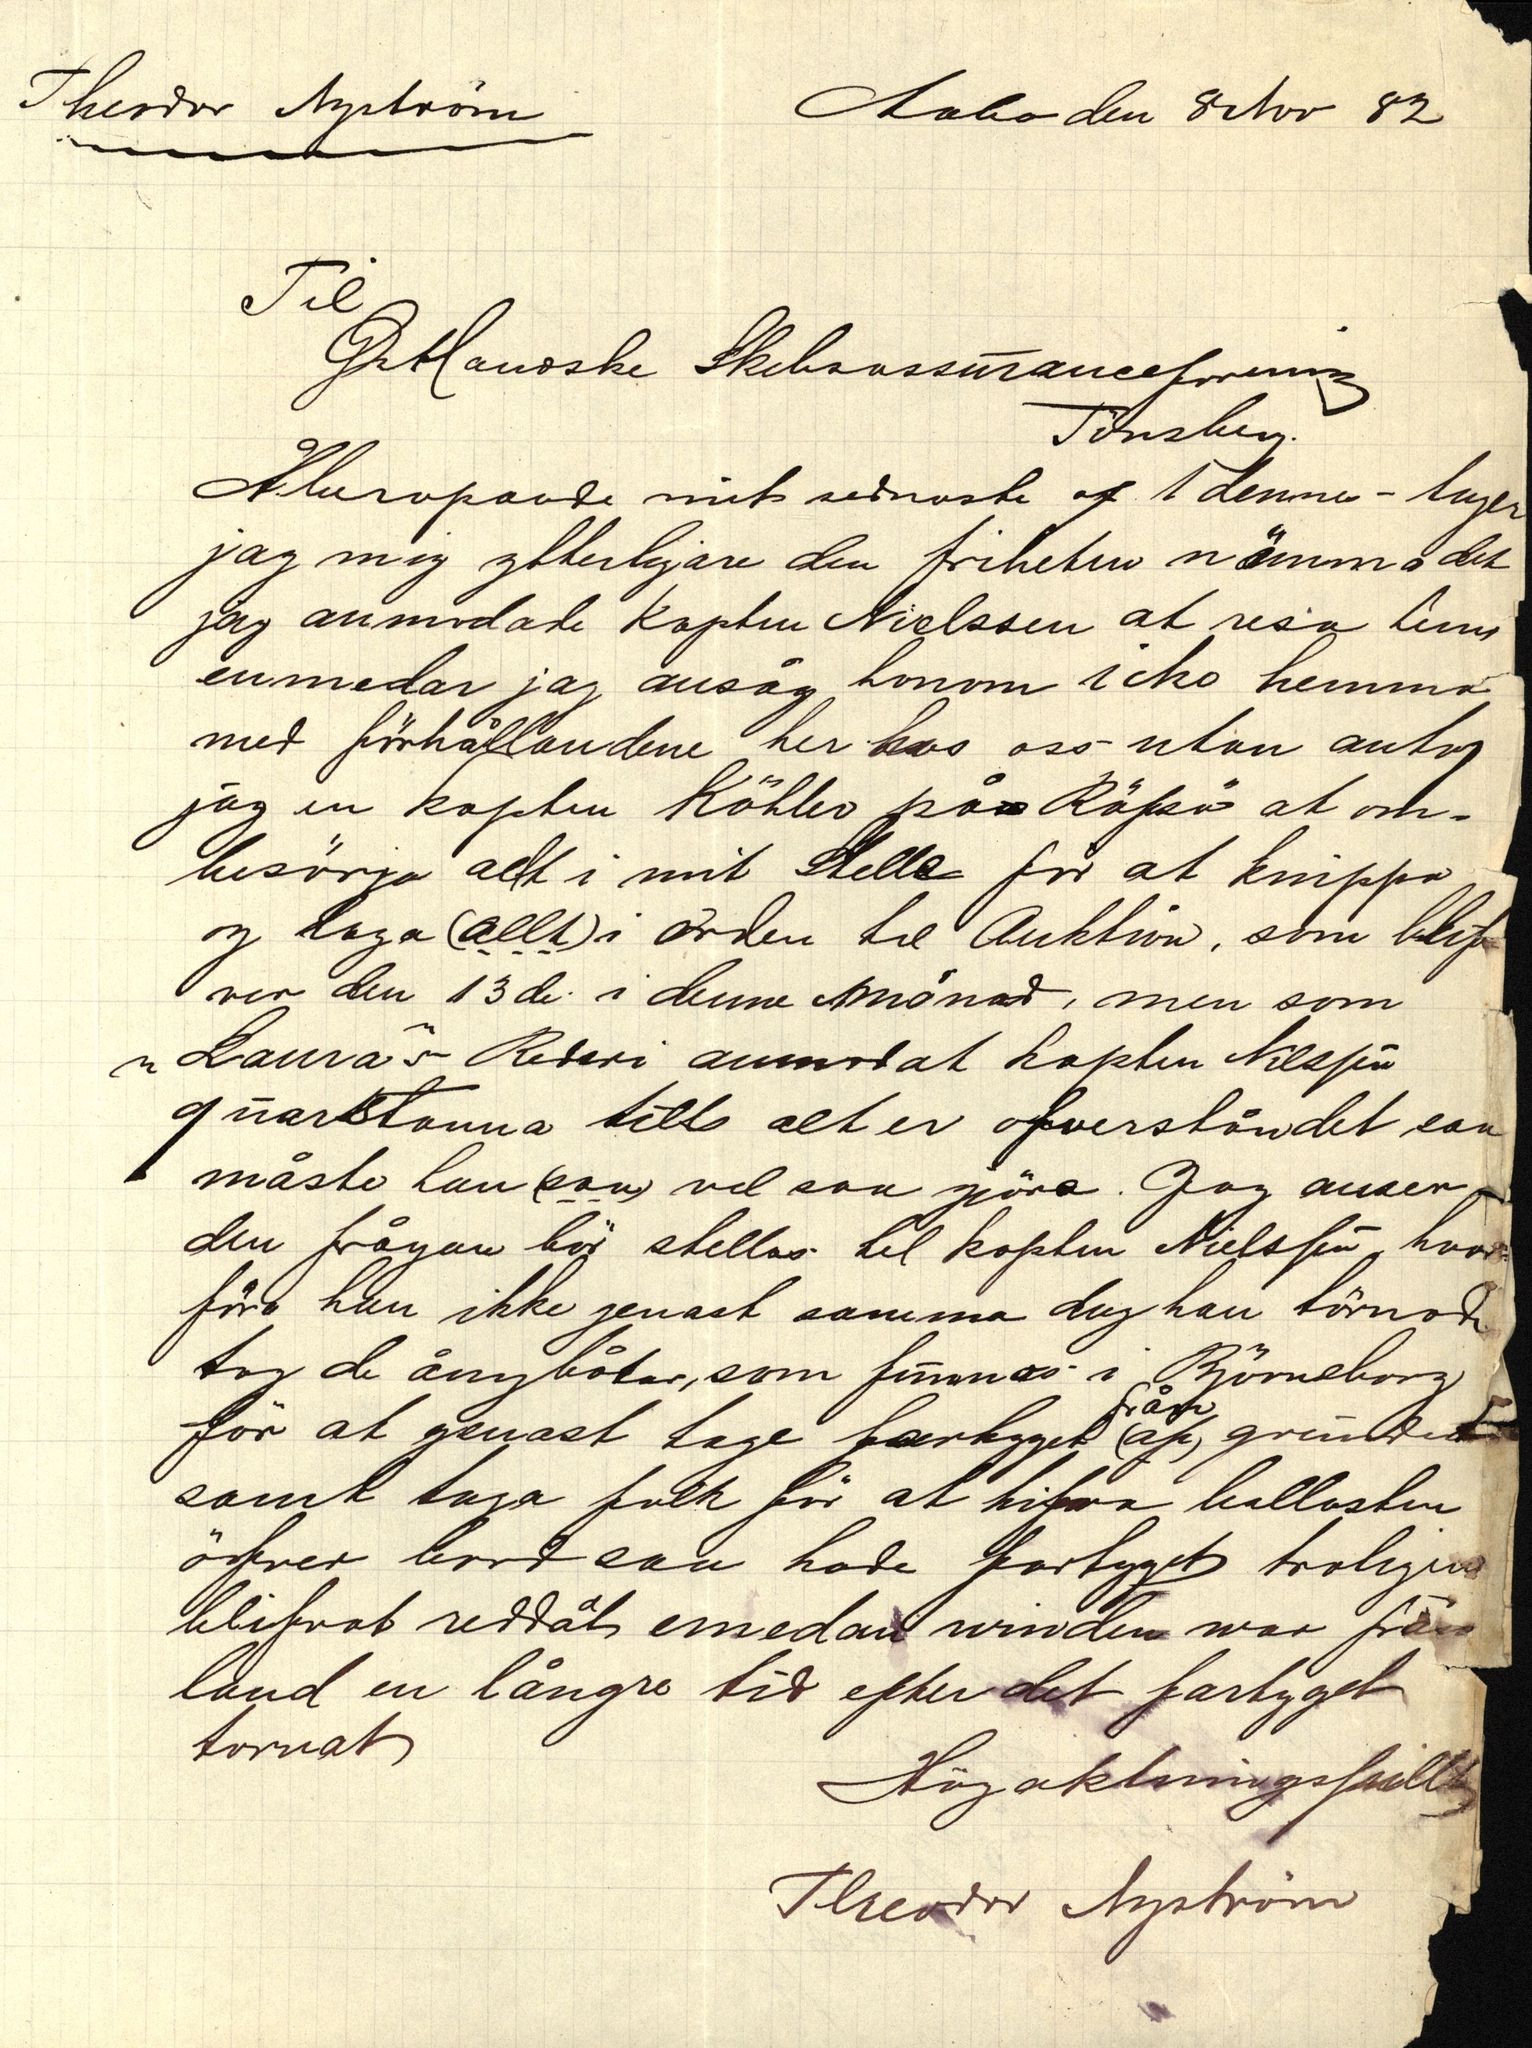 Theodor Nyström
Aabo den 8 Nov 82
Til
Østlandske Skebsassuranceforening
Tönsberg.
Åberopande mit sednaste af 1 dennes - tager
jag mig ytterligare den friheten nämna det
jag anmodade kapten Nielssen at resa hem
enmedan jag ansåg honom icke hemma
med förhållandene her hos oss utan antog
jag en kapten Köhler på Räfsö at om-
besörja alt i mit Stelle for at knippa
og taga (allt) i orden til Auktion, som blif
ver den 13de i denne Månad, men som
"Laura"s Rederi anmodat kapten Nilssen
quarstanna till alt er ofverståndet saa
måste han (saa) vel saa gjöra. Jag anser
den frågan bör stellas til kapten Nielssen hvor-
före han ikke genast samma dag han törnade
tog de ångbåtar, som funnas i Björneborg
för at genast tage fartyget från (af) grundet
samt taga folk för at hifva ballasten
öfver bord saa hade fartyget troligen
blifvat reddåt emedan vinden war från
land en långre tid efter det fartyget
tornat
Högaktningsfullt
Theodor Nyström